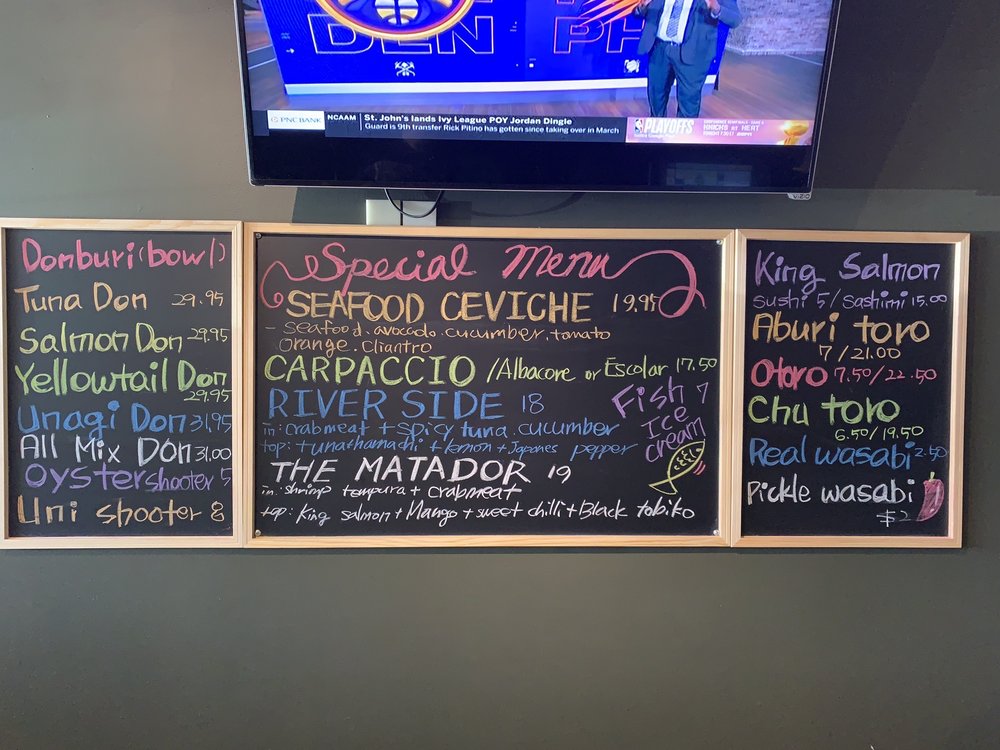 DEN
PH
PNC BANK
NCAAM
St. John's lands Ivy League POY Jordan Dingle
Guard is 9th transfer Rick Pitino has gotten since taking over in March
PLAYOFFS
KNICKS AT HEAT
VIZIO
Donburi (bowl)
Tuna Don 29.95
Salmon Don 29.95
Yellowtail Don
29.95
Unagi Don 31.95
All Mix Don 31.00
Oyster shooter 5
Uni shooter 8
Special Menu
SEAFOOD CEVICHE 19.95
- seafood. avocado. cucumber. tomato
orange. cliantro
CARPACCIO /Albacore or Escolar 17.50
RIVER SIDE 18
in: crabmeat + spicy tuna. cucumber
top: tuna+hamachi + lemon + Japanes pepper
THE MATADOR 19
in: shrimp tempura + crabmeat
top: King salmon + Mango + sweet chilli + Black tobiko
Fish 7
Ice
cream
King Salmon
sushi 5 / Sashimi 15.00
Aburi toro
7 / 21.00
Otoro 7.50 / 22.50
Chu toro
6.50 / 19.50
Real wasabi 2.50
Pickle wasabi
$2